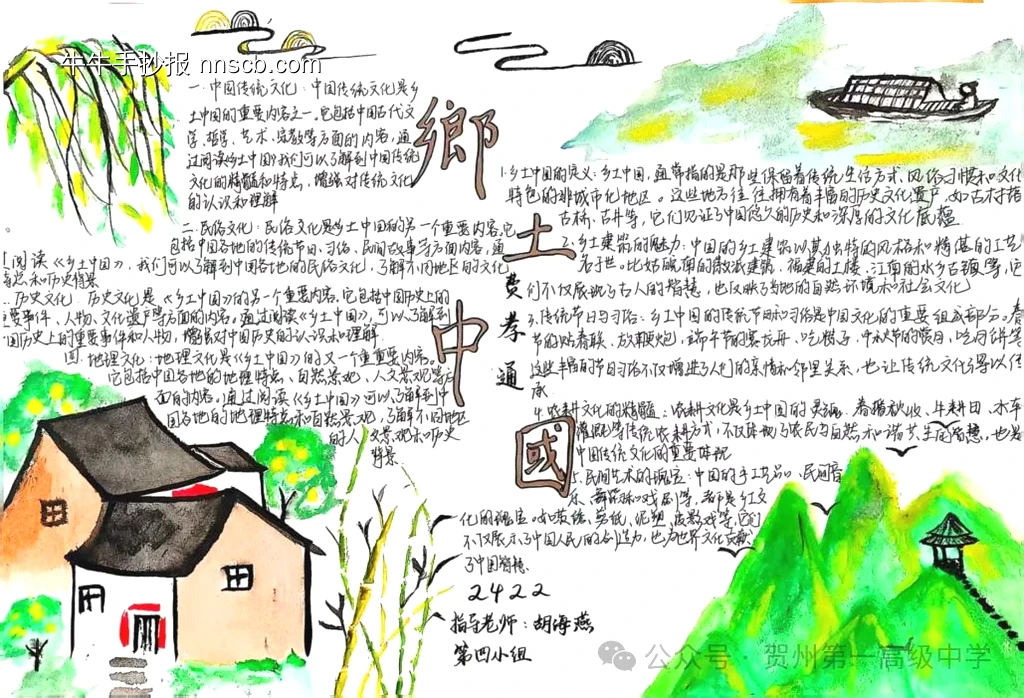 牛牛手抄报 nnscb.com
鄉土中國
费孝通
一.中国传统文化:中国传统文化是乡
土中国的重要内容之一。它包括中国古代文
学、哲学、艺术、宗教等方面的内容。通
过阅读《乡土中国》我们可以了解到中国传统
文化的精髓和特点,增强对传统文化
的认识和理解
二.民俗文化:民俗文化是乡土中国的另一个重要内容。它
包括中国各地的传统节日、习俗、民间故事等方面内容,通
过阅读《乡土中国》,我们可以了解到中国各地的民俗文化,了解不同地区的文化
和历史背景
三.历史文化:历史文化是《乡土中国》的另一个重要内容。它包括中国历史上的
重要事件、人物、文化遗产等方面的内容。通过阅读《乡土中国》,可以了解到
中国历史上的重要事件和人物,增强对中国历史的认识和理解
四.地理文化:地理文化是《乡土中国》的又一个重要内容。
它包括中国各地的地理特点、自然景观、人文景观等方
面的内容。通过阅读《乡土中国》可以了解到中
国各地的地理特点和自然景观,了解不同地区
的人文景观和历史
背景
1.乡土中国的定义:乡土中国,通常指的是那些保留着传统生活方式、风俗习惯和文化
特色的非城市化地区。这些地方往往拥有着丰富的历史文化遗产,如古村落
古桥、古井等,它们见证了中国悠久的历史和深厚的文化底蕴
2.乡土建筑的魅力:中国的乡土建筑以其独特的风格和精湛的工艺
名于世。比如皖南的徽派建筑、福建的土楼、江南的水乡古镇等,它
们不仅展现了古人的智慧,也反映了当地的自然环境和社会文化
3.传统节日与习俗:乡土中国的传统节日和习俗是中国文化的重要组成部分。春
节的贴春联、放鞭炮,端午节的赛龙舟、吃粽子,中秋节的赏月、吃月饼等
这些丰富的节日习俗不仅增进了人们的亲情和邻里关系,也让传统文化得以传
承
4.农耕文化的精髓:农耕文化是乡土中国的灵魂。春播秋收、牛耕田、水车
灌溉等传统农耕方式,不仅体现了农民与自然和谐共生的智慧,也是
中国传统文化的重要体现
5.民间艺术的瑰宝:中国的手工艺品、民间音
乐、舞蹈和戏剧等,都是乡土文
化的瑰宝。如刺绣、剪纸、泥塑、皮影戏等,它们
不仅展示了中国人民的创造力,也为世界文化贡献
了中国智慧
2422
指导老师:胡海燕
第四小组
公众号·贺州第一高级中学